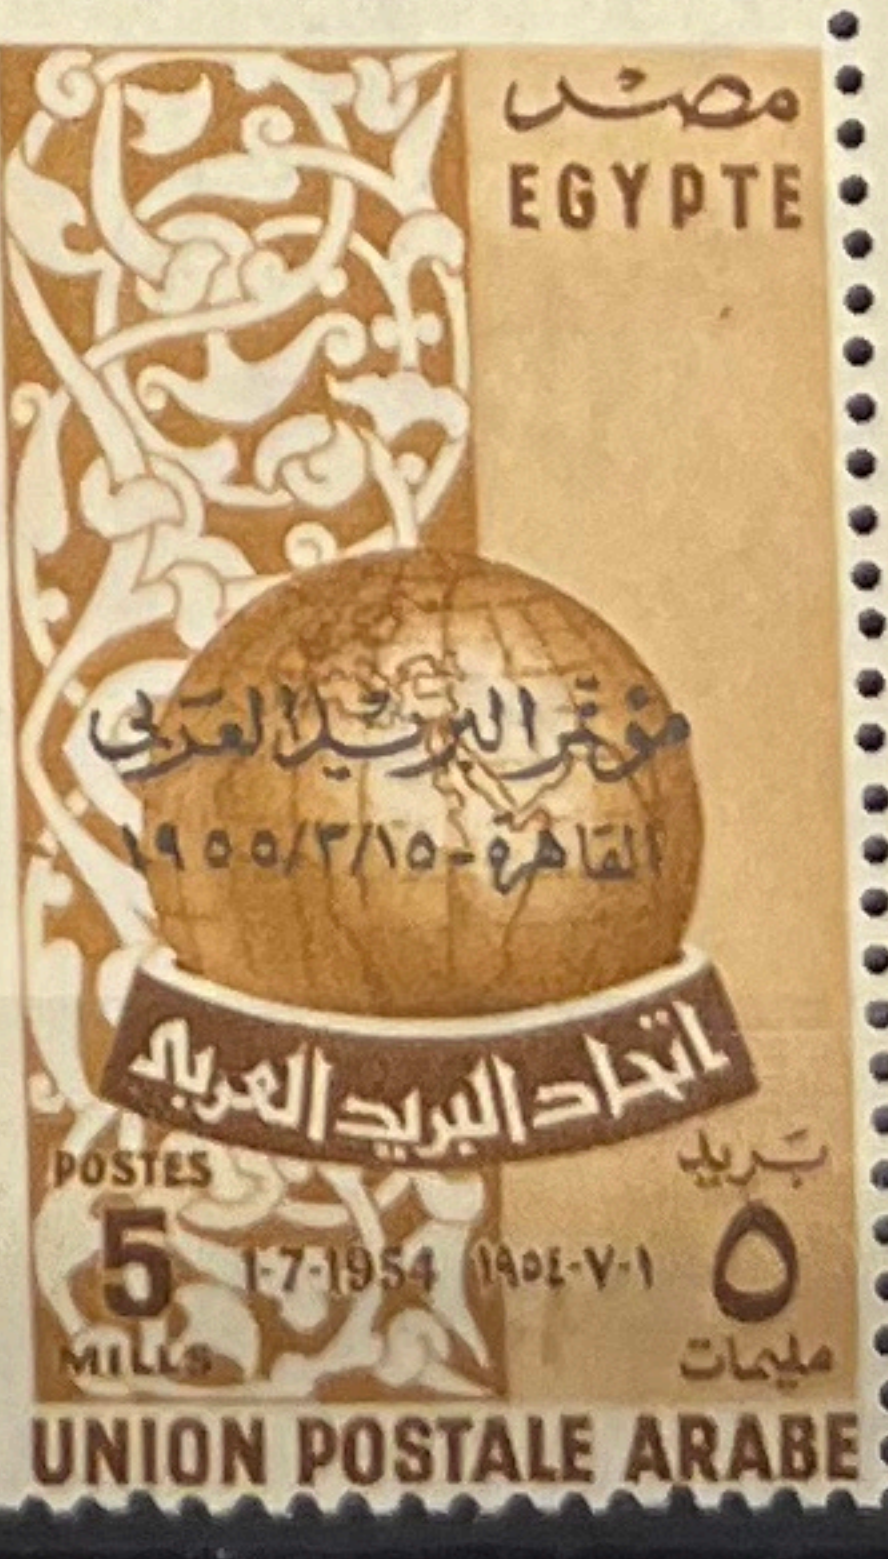 مصر
EGYPTE
مؤتمر البريد العربى
القاهرة - ١٩٥٥/٣/١٥
اتحاد البريد العربى
POSTES
بريد
5
1-7-1954
١٩٥٤-٧-١
٥
MILLS
مليمات
UNION POSTALE ARABE